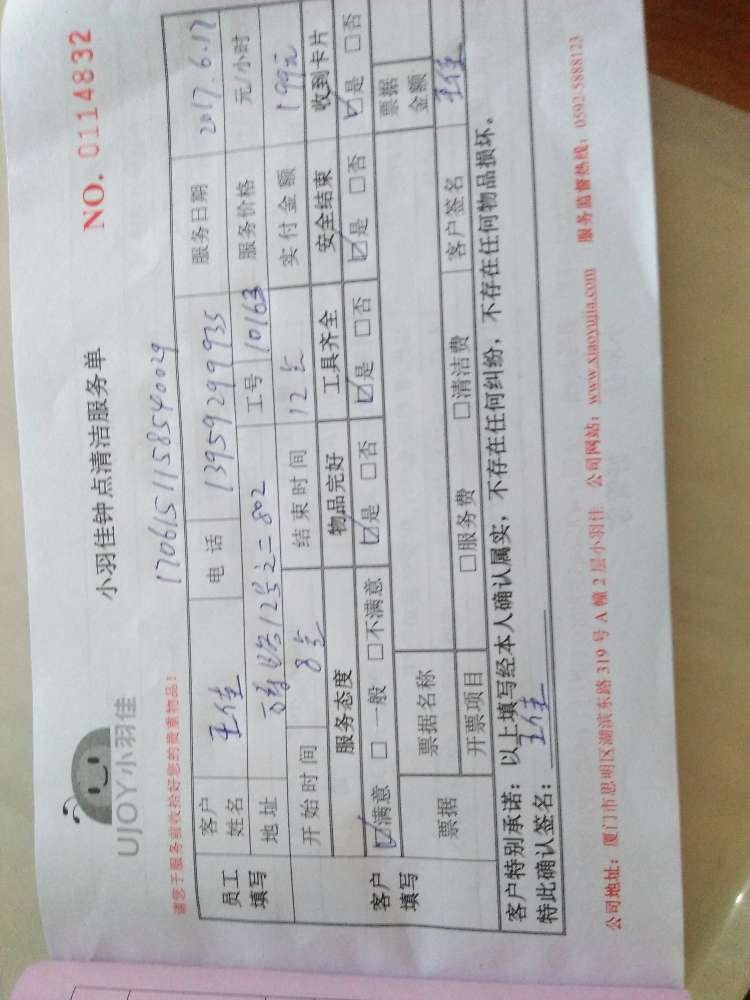 UJOY小羽佳
小羽佳钟点清洁服务单
NO. 0114832
请您于服务前收拾好您的贵重物品！
1706151158540029
员工填写
客户姓名 王佳 电话 13959299935 服务日期 2017.6.17
地址 路12号之二802 工号 10163 服务价格 元/小时
开始时间 8点 结束时间 12点 实付金额 199元
客户填写
服务态度 物品完好 工具齐全 安全结束 收到卡片
☑满意 □一般 □不满意 ☑是 □否 ☑是 □否 ☑是 □否 ☑是 □否
票据 票据名称 票据金额
开票项目 □服务费 □清洁费 客户签名 王佳
客户特别承诺：以上填写经本人确认属实，不存在任何纠纷，不存在任何物品损坏。
特此确认签名：王佳
公司地址：厦门市思明区湖滨东路319号A幢2层小羽佳 公司网站：www.xiaoyujia.com 服务监督热线：0592-5888123